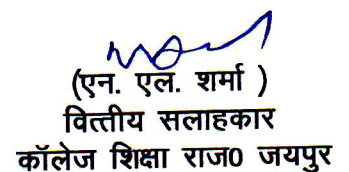 (एन. एल. शर्मा )
वित्तीय सलाहकार
कॉलेज शिक्षा राज0 जयपुर